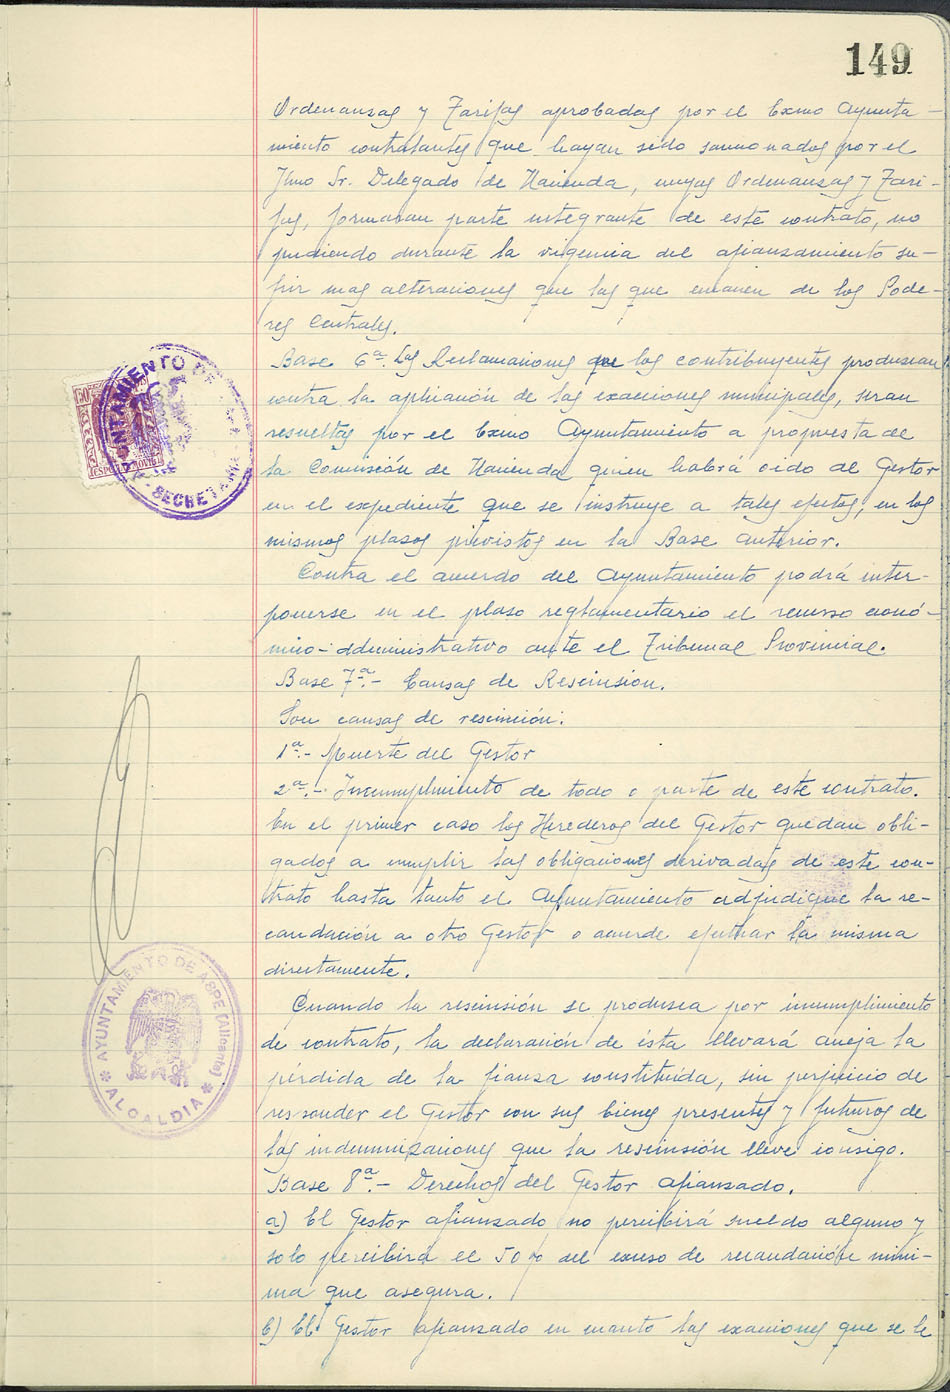 149
Ordenanzas y Tarifas aprobadas por el Exmo Ayunta-
miento contratantes que hayan sido sancionados por el
Ilmo Sr. Delegado de Hacienda, cuyas Ordenanzas y Tari-
fas, formaran parte integrante de este contrato, no
pudiendo durante la vigencia del afianzamiento su-
frir mas alteraciones que las que emanen de los Pode-
res Centrales.
Base 6ª. Las Reclamaciones que los contribuyentes produzcan
contra la aplicación de las exacciones municipales, seran
resueltas por el Exmo Ayuntamiento a propuesta de
la Comisión de Hacienda quien habrá oido al Gestor
en el expediente que se instruye a tales efectos, en los
mismos plazos previstos en la Base anterior.
Contra el acuerdo del Ayuntamiento podrá inter-
ponerse en el plazo reglamentario el recurso econó-
mico-administrativo ante el Tribunal Provincial.
Base 7ª.- Causas de Rescinsion.
Son causas de rescinción:
1ª.- Muerte del Gestor
2ª.- Incumplimiento de todo o parte de este contrato.
En el primer caso los Herederos del Gestor quedan obli-
gados a cumplir las obligaciones derivadas de este con-
trato hasta tanto el Ayuntamiento adjudique la re-
caudación a otro Gestor o acuerde efectuar la misma
directamente.
Cuando la rescinsión se produzca por incumplimiento
de contrato, la declaración de ésta llevará aneja la
pérdida de la fianza constituida, sin perjuicio de
responder el Gestor con sus bienes presentes y futuros de
las indemnizaciones que la rescinsión lleve consigo.
Base 8ª.- Derechos del Gestor afianzado.
a) El Gestor afianzado no percibirá sueldo alguno y
solo percibirá el 50% del exceso de recaudación mini-
ma que asegura.
b) El Gestor afianzado en cuanto las exacciones que se le
AYUNTAMIENTO DE
SECRETARIA
AYUNTAMIENTO DE ASPE (Alicante)
ALCALDIA